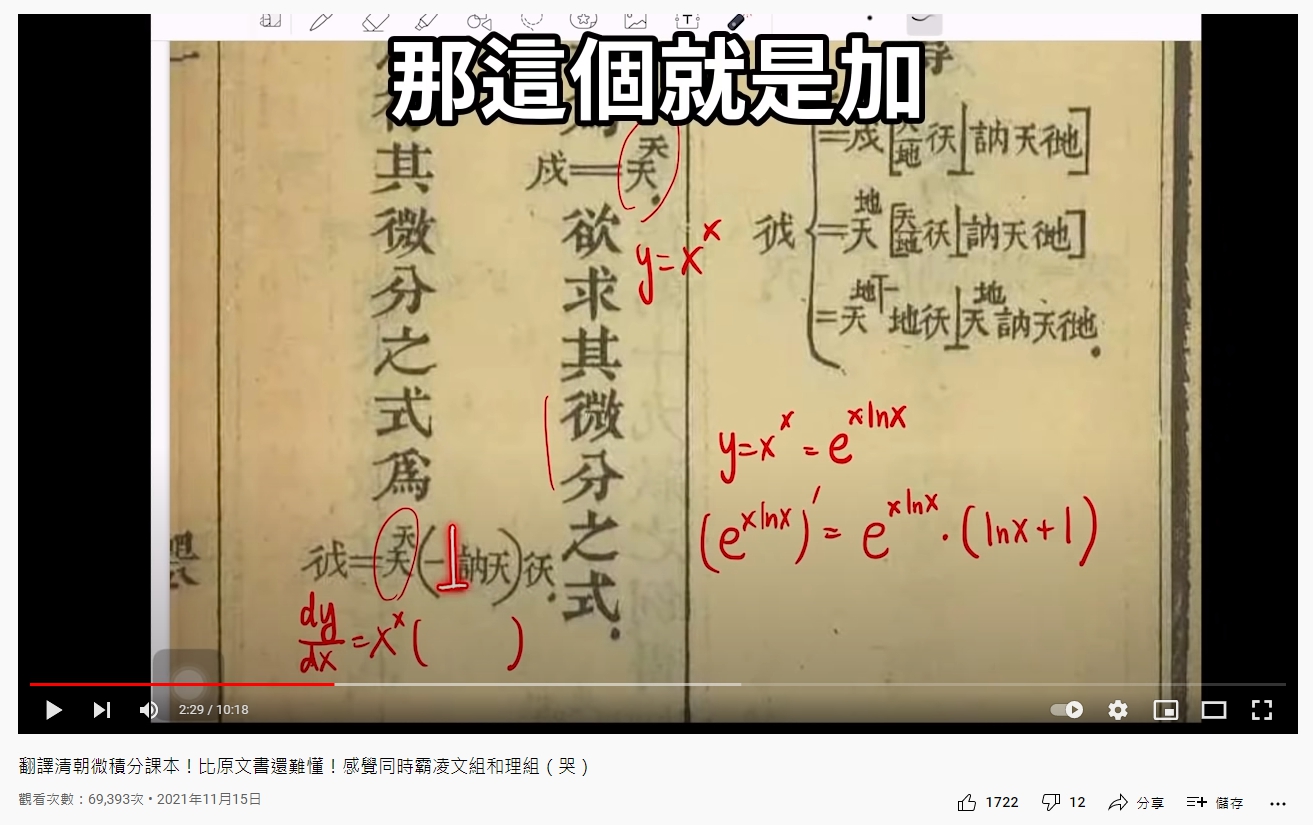 那這個就是加
其微分之式爲
彽=天天(一⊥訥天)彳天.
戍=天天.
欲求其微分之式.
=戍[天/地 彳天⊥訥天彳地]
=天地[天/地 彳天⊥訥天彳地]
=天地⊤一地彳天⊥天地訥天彳地.
y=x^x
y=x^x=e^(xlnx)
(e^(xlnx))'=e^(xlnx)·(lnx+1)
dy/dx=x^x( )
2:29 / 10:18
翻譯清朝微積分課本！比原文書還難懂！感覺同時霸凌文組和理組（哭）
觀看次數：69,393次 • 2021年11月15日
1722 12 分享 儲存